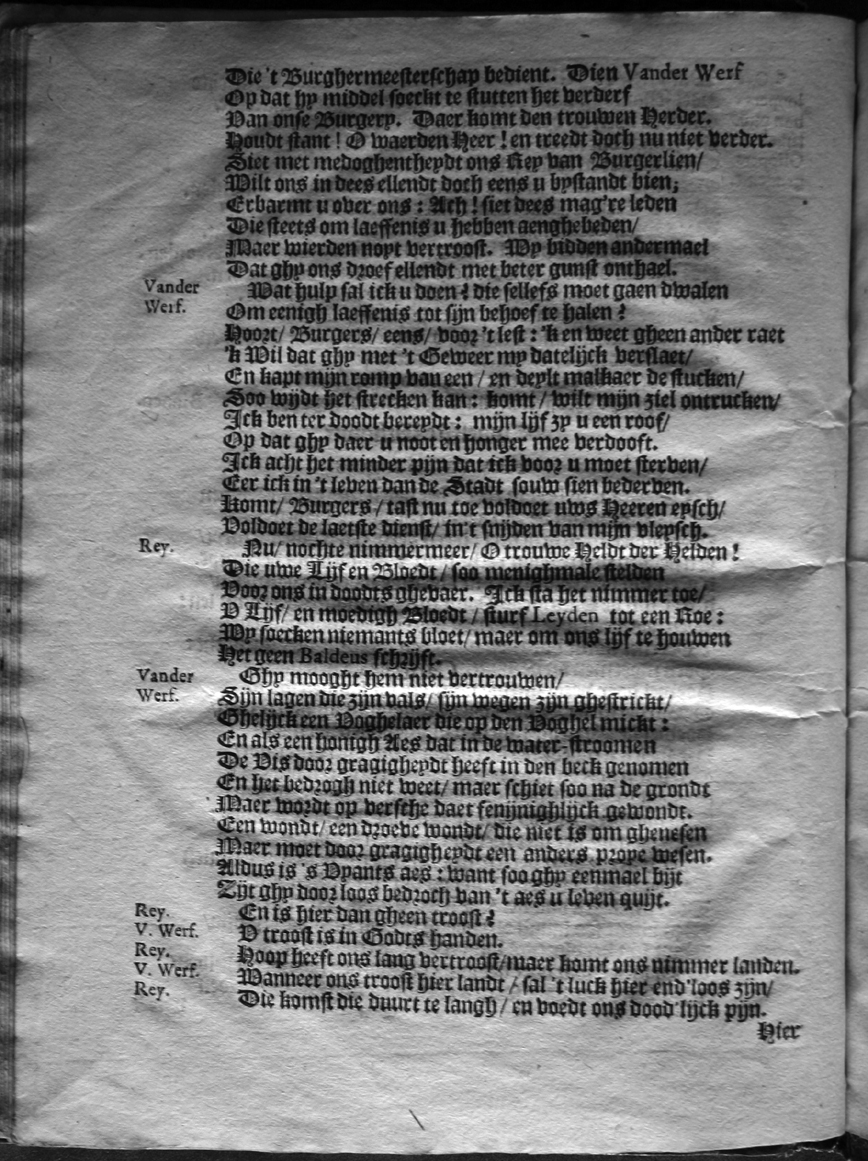 Die 't Burghermeesterschap bedient. Dien Vander Werf
Op dat hy middel soeckt te stutten het verderf
Van onse Burgery. Daer komt den trouwen Herder.
Houdt stant! O waerden Heer! en treedt doch nu niet verder.
Siet met medoghentheydt ons Rey van Burgerlien/
Wilt ons in dees ellendt doch eens u bystandt bien;
Erbarmt u over ons: Ach! siet dees mag're leden
Die steets om laeffenis u hebben aenghebeden/
Maer wierden noyt vertroost. Wy bidden andermael
Dat ghy ons droef ellendt met beter gunst onthael.
Vander Werf. Wat hulp sal ick u doen? die sellefs moet gaen dwalen
Om eenigh laeffenis tot sijn behoef te halen?
Hoort/ Burgers/ eens/ voor 't lest: 'k en weet gheen ander raet
'k Wil dat ghy met 't Geweer my datelijck verslaet/
En kapt mijn romp van een/ en deylt malkaer de stucken/
Soo wijdt het strecken kan: komt/ wilt mijn ziel ontrucken/
Ick ben ter doodt bereydt: mijn lijf zy u een roof/
Op dat ghy daer u noot en honger mee verdooft.
Ick acht het minder pijn dat ick voor u moet sterven/
Eer ick in 't leven dan de Stadt souw sien bederven.
Komt/ Burgers/ tast nu toe voldoet uws Heeren eysch/
Voldoet de laetste dienst/ in't snijden van mijn vleysch.
Rey. Nu/ nochte nimmermeer/ O trouwe Heldt der Helden!
Die uwe Lijf en Bloedt/ soo menighmale stelden
Voor ons in doodts ghevaer. Ick sta het nimmer toe/
V Lijf/ en moedigh Bloedt/ sturf Leyden tot een Roe:
Wy soecken niemants bloet/ maer om ons lijf te houwen
Het geen Baldeus schrijft.
Vander Werf. Ghy mooght hem niet vertrouwen/
Sijn lagen die zijn vals/ sijn wegen zijn ghestrickt/
Ghelijck een Voghelaer die op den Voghel mickt:
En als een honigh Aes dat in de water-stroomen
De Vis door gragigheydt heeft in den beck genomen
En het bedrogh niet weet/ maer schiet soo na de grondt
Maer wordt op versche daet fenijnighlijck gewondt.
Een wondt/ een droeve wondt/ die niet is om ghenesen
Maer moet door gragigheydt een anders prope wesen.
Aldus is 's Vyants aes: want soo ghy eenmael bijt
Zijt ghy door loos bedroch van 't aes u leven quijt.
Rey. En is hier dan gheen troost?
V. Werf. V troost is in Godts handen.
Rey. Hoop heeft ons lang vertroost/maer komt ons nimmer landen.
V. Werf. Wanneer ons troost hier landt/ sal 't luck hier end'loos zijn/
Rey. Die komst die duurt te langh/ en voedt ons dood'lijck pijn.
Hier